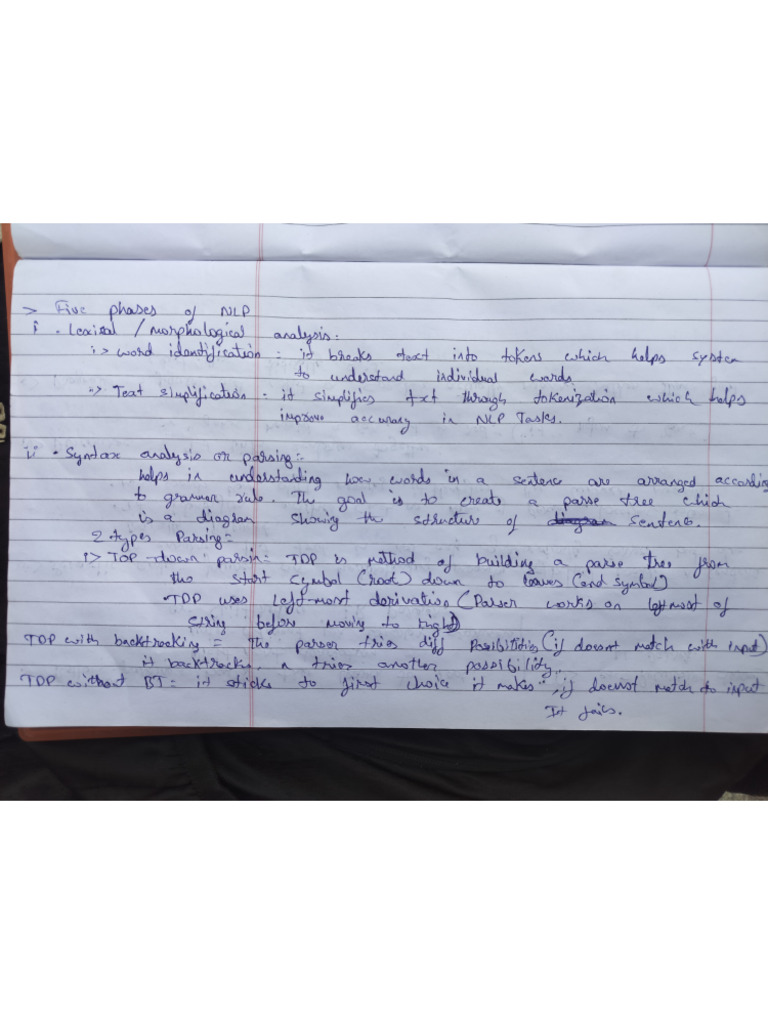 > Five phases of NLP
i . Lexical / morphological analysis :
i > word identification : it breaks text into tokens which helps system
to understand individual words
.> Text simplification : it simplifies txt through tokenization which helps
improve accuracy in NLP Tasks.
ii . Syntax analysis or parsing :-
helps in understanding how words in a sentence are arranged according
to grammar rule. The goal is to create a parse tree which
is a diagram showing the structure of diagram sentence.
2 types Parsing :-
i > TOP -down parsin : TDP is method of building a parse tree from
the start symbol (root) down to leaves (end symbol)
TDP uses left-most derivation (Parser works on leftmost of
string before moving to right)
TDP with backtracking = The parser tries diff possibilities (if doesnt match with input)
it backtracks, n tries another possibility.
TDP without BT = it sticks to first choice it makes, if doesnot match to input
It fails.